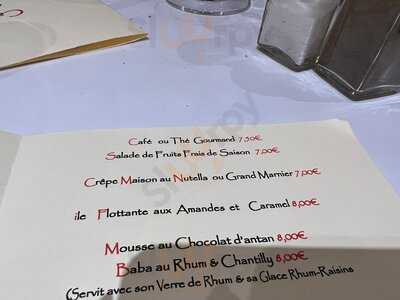 Café ou Thé Gourmand 7,50€
Salade de Fruits Frais de Saison 7,00€
Crêpe Maison au Nutella ou Grand Marnier 7,00€
ile Flottante aux Amandes et Caramel 8,00€
Mousse au Chocolat d'antan 8,00€
Baba au Rhum & Chantilly 8,00€
(Servit avec son Verre de Rhum & sa Glace Rhum-Raisins